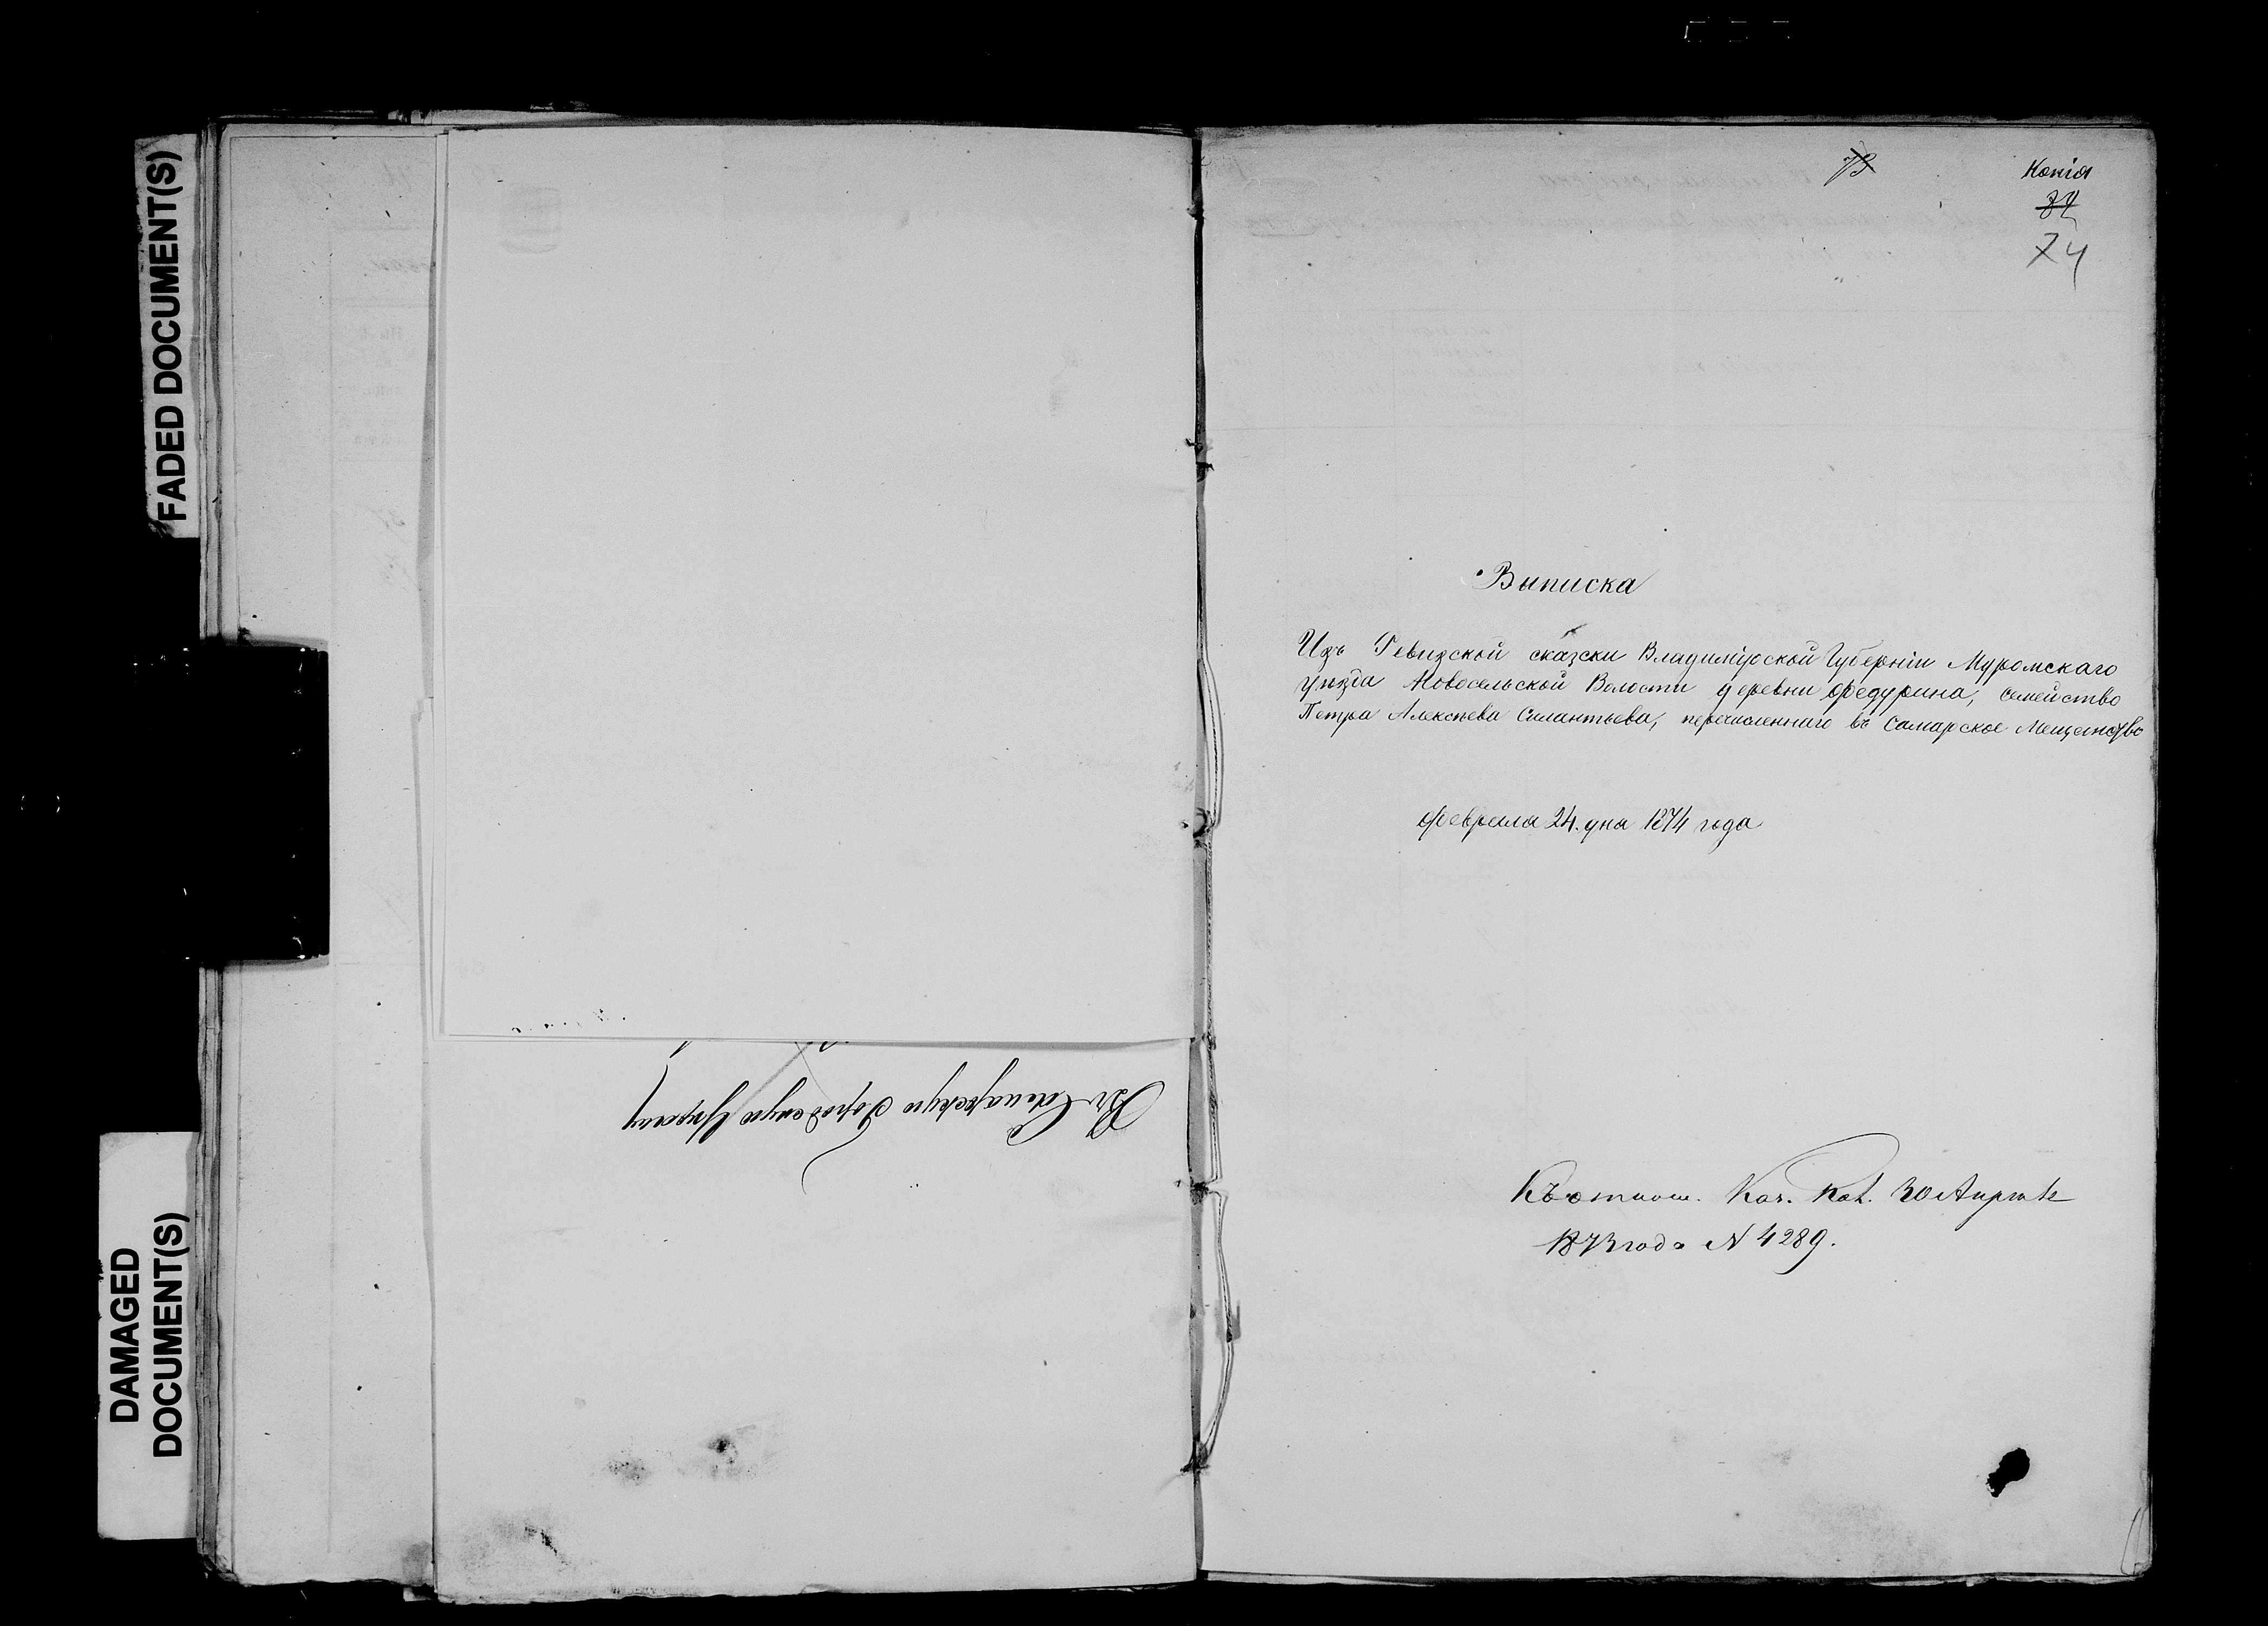 FADED DOCUMENT(S)
DAMAGED
DOCUMENT(S)
Въ Самарскую Городскую Управу
73
Копія
84
74
Выписка
Изъ Ревизской сказки Владимірской Губерніи Муромскаго
уѣзда Новосельской Волости деревни Федурина, семейство
Петра Алексѣева Силантьева, перечисленнаго въ Самарское Мещанство
Февраля 24. дня 1874 года
Къ отнош. Каз. Пал. 30 Апрѣля
1873 года N 4289.